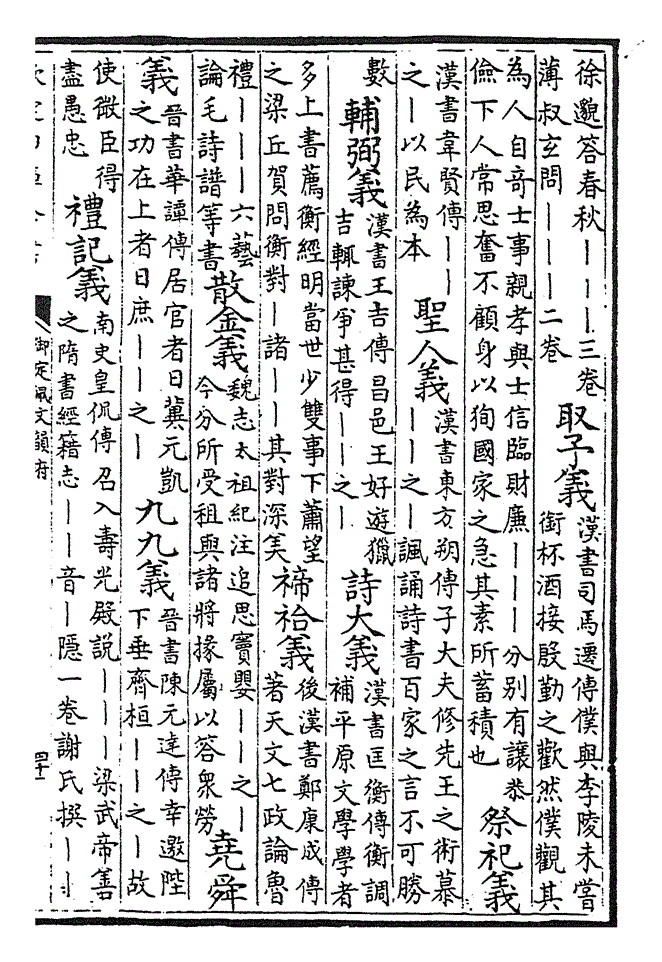 徐邈答春秋｜｜｜三卷
薄叔玄問｜｜｜｜二卷
取予義
漢書司馬遷傳僕與李陵未嘗
銜杯酒接殷勤之歡然僕觀其
為人自奇士事親孝與士信臨財廉｜｜｜分別有讓恭
儉下人常思奮不顧身以狥國家之急其素所蓄積也
祭祀義
漢書韋賢傳｜｜
之｜以民為本
聖人義
漢書東方朔傳子大夫修先王之術慕
｜｜之｜諷誦詩書百家之言不可勝
數
輔弼義
漢書王吉傳昌邑王好遊獵
吉輒諫爭甚得｜｜之｜
詩大義
漢書匡衡傳衡調
補平原文學學者
多上書薦衡經明當世少雙事下蕭望
之梁丘賀問衡對｜諸｜｜其對深美
禘祫義
後漢書鄭康成傳
著天文七政論魯
禮｜｜｜六藝
論毛詩譜等書
散金義
魏志太祖紀注追思竇嬰｜｜之｜
今分所受租與諸將掾屬以答衆勞
堯舜
義
晉書華譚傳居官者日冀元凱
之功在上者日庶｜｜之｜
九九義
晉書陳元達傳幸邀陛
下垂齊桓｜｜之｜故
使微臣得
盡愚忠
禮記義
南史皇侃傳召入壽光殿説｜｜｜梁武帝善
之隋書經籍志｜｜音｜隱一卷謝氏撰｜｜｜
御定佩文韻府
四十